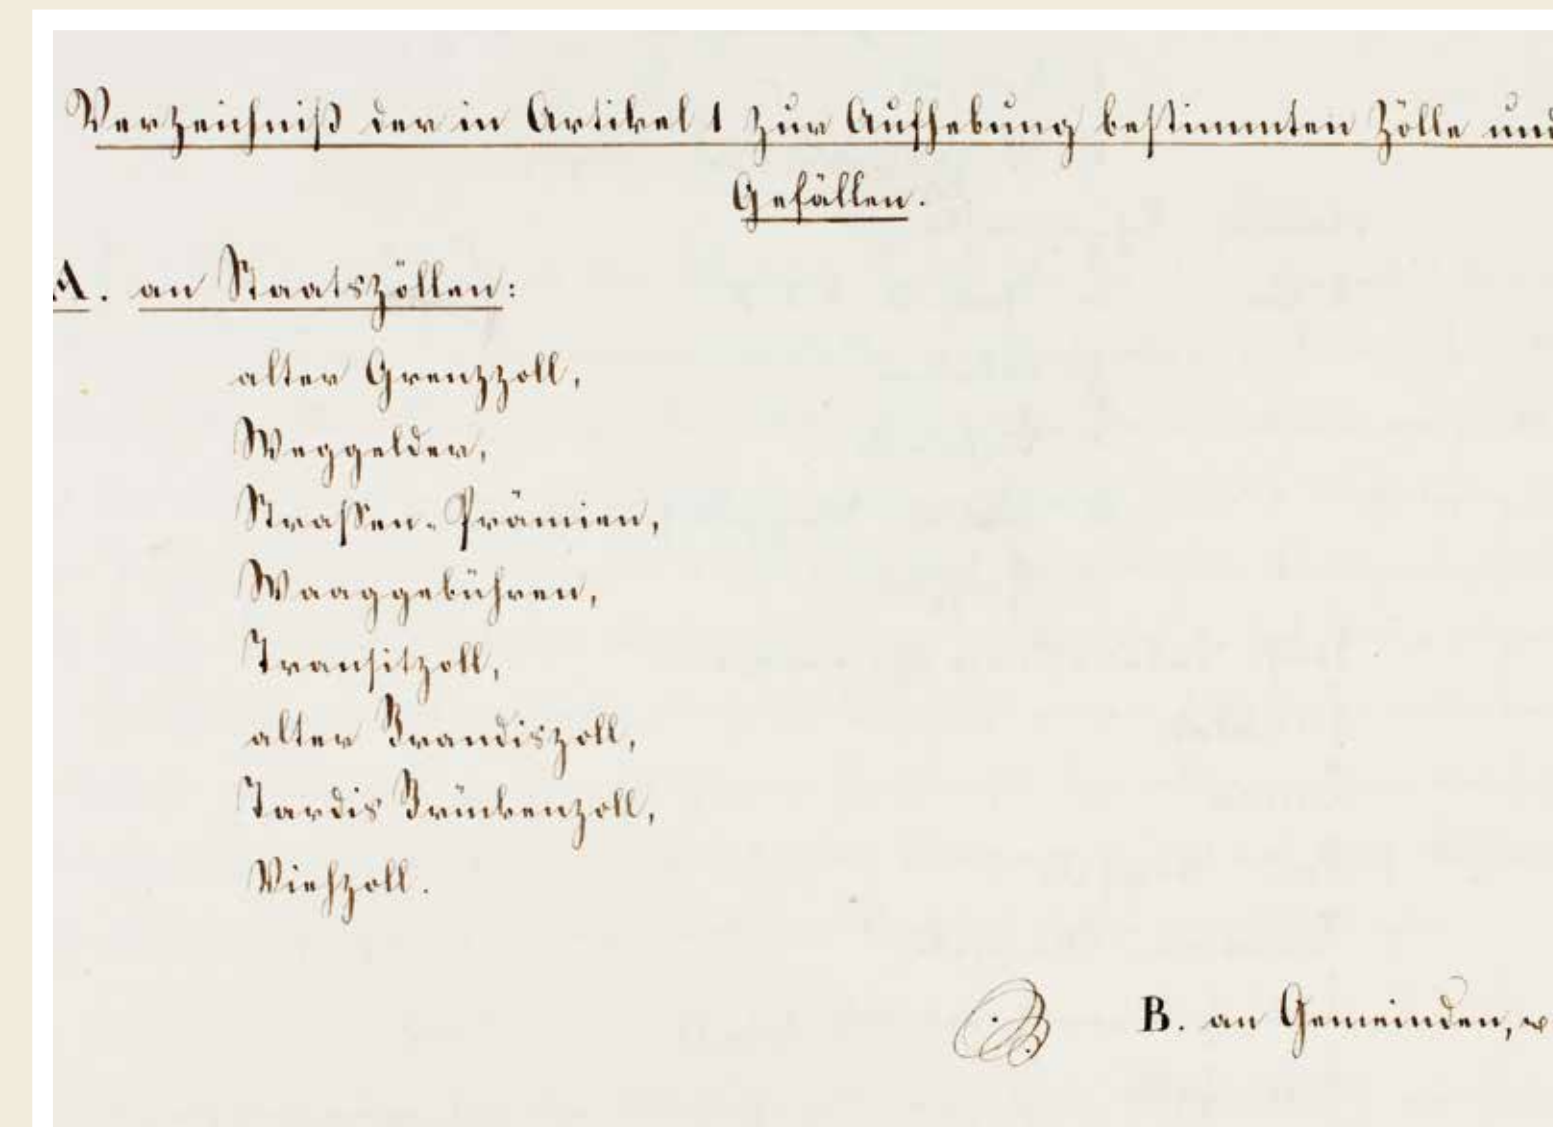 Verzeichniß der in Artikel 1 zur Aufhebung bestimmten Zölle und
Gefällen.
A. an Staatszöllen:
alter Grenzzoll,
Weggelder,
Strassen-Prämien,
Waaggebühren,
Transitzoll,
alter Brandiszoll,
Tardis Brückenzoll,
Viehzoll.
B. an Gemeinden,